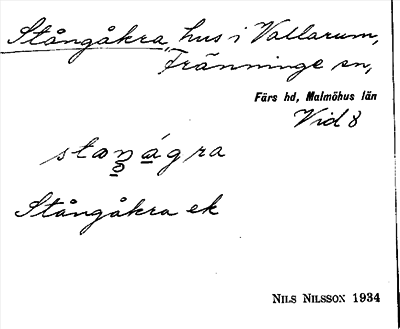 Stångåkra, hus i Vallarum,
Fränninge sn,
Färs hd, Malmöhus län
Vid 8
staŋágra
Stångåkra ek
NILS NILSSON 1934